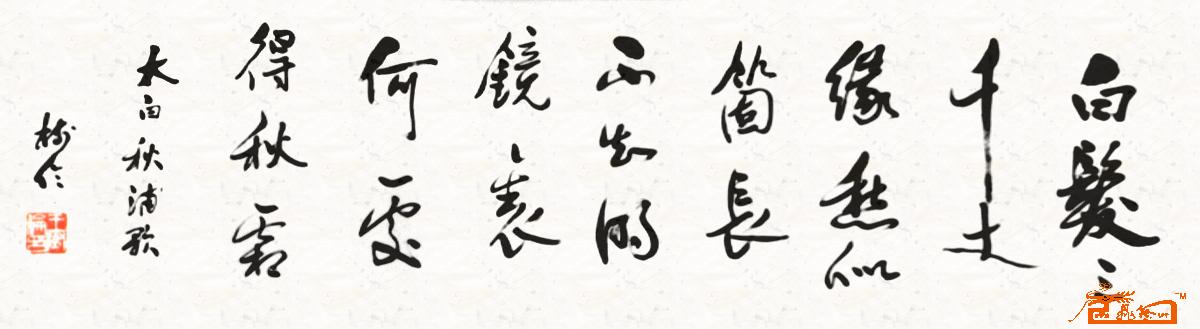 白髮三
千丈
緣愁似
箇長
不知明
鏡裏
何處
得秋霜
太白秋浦歌